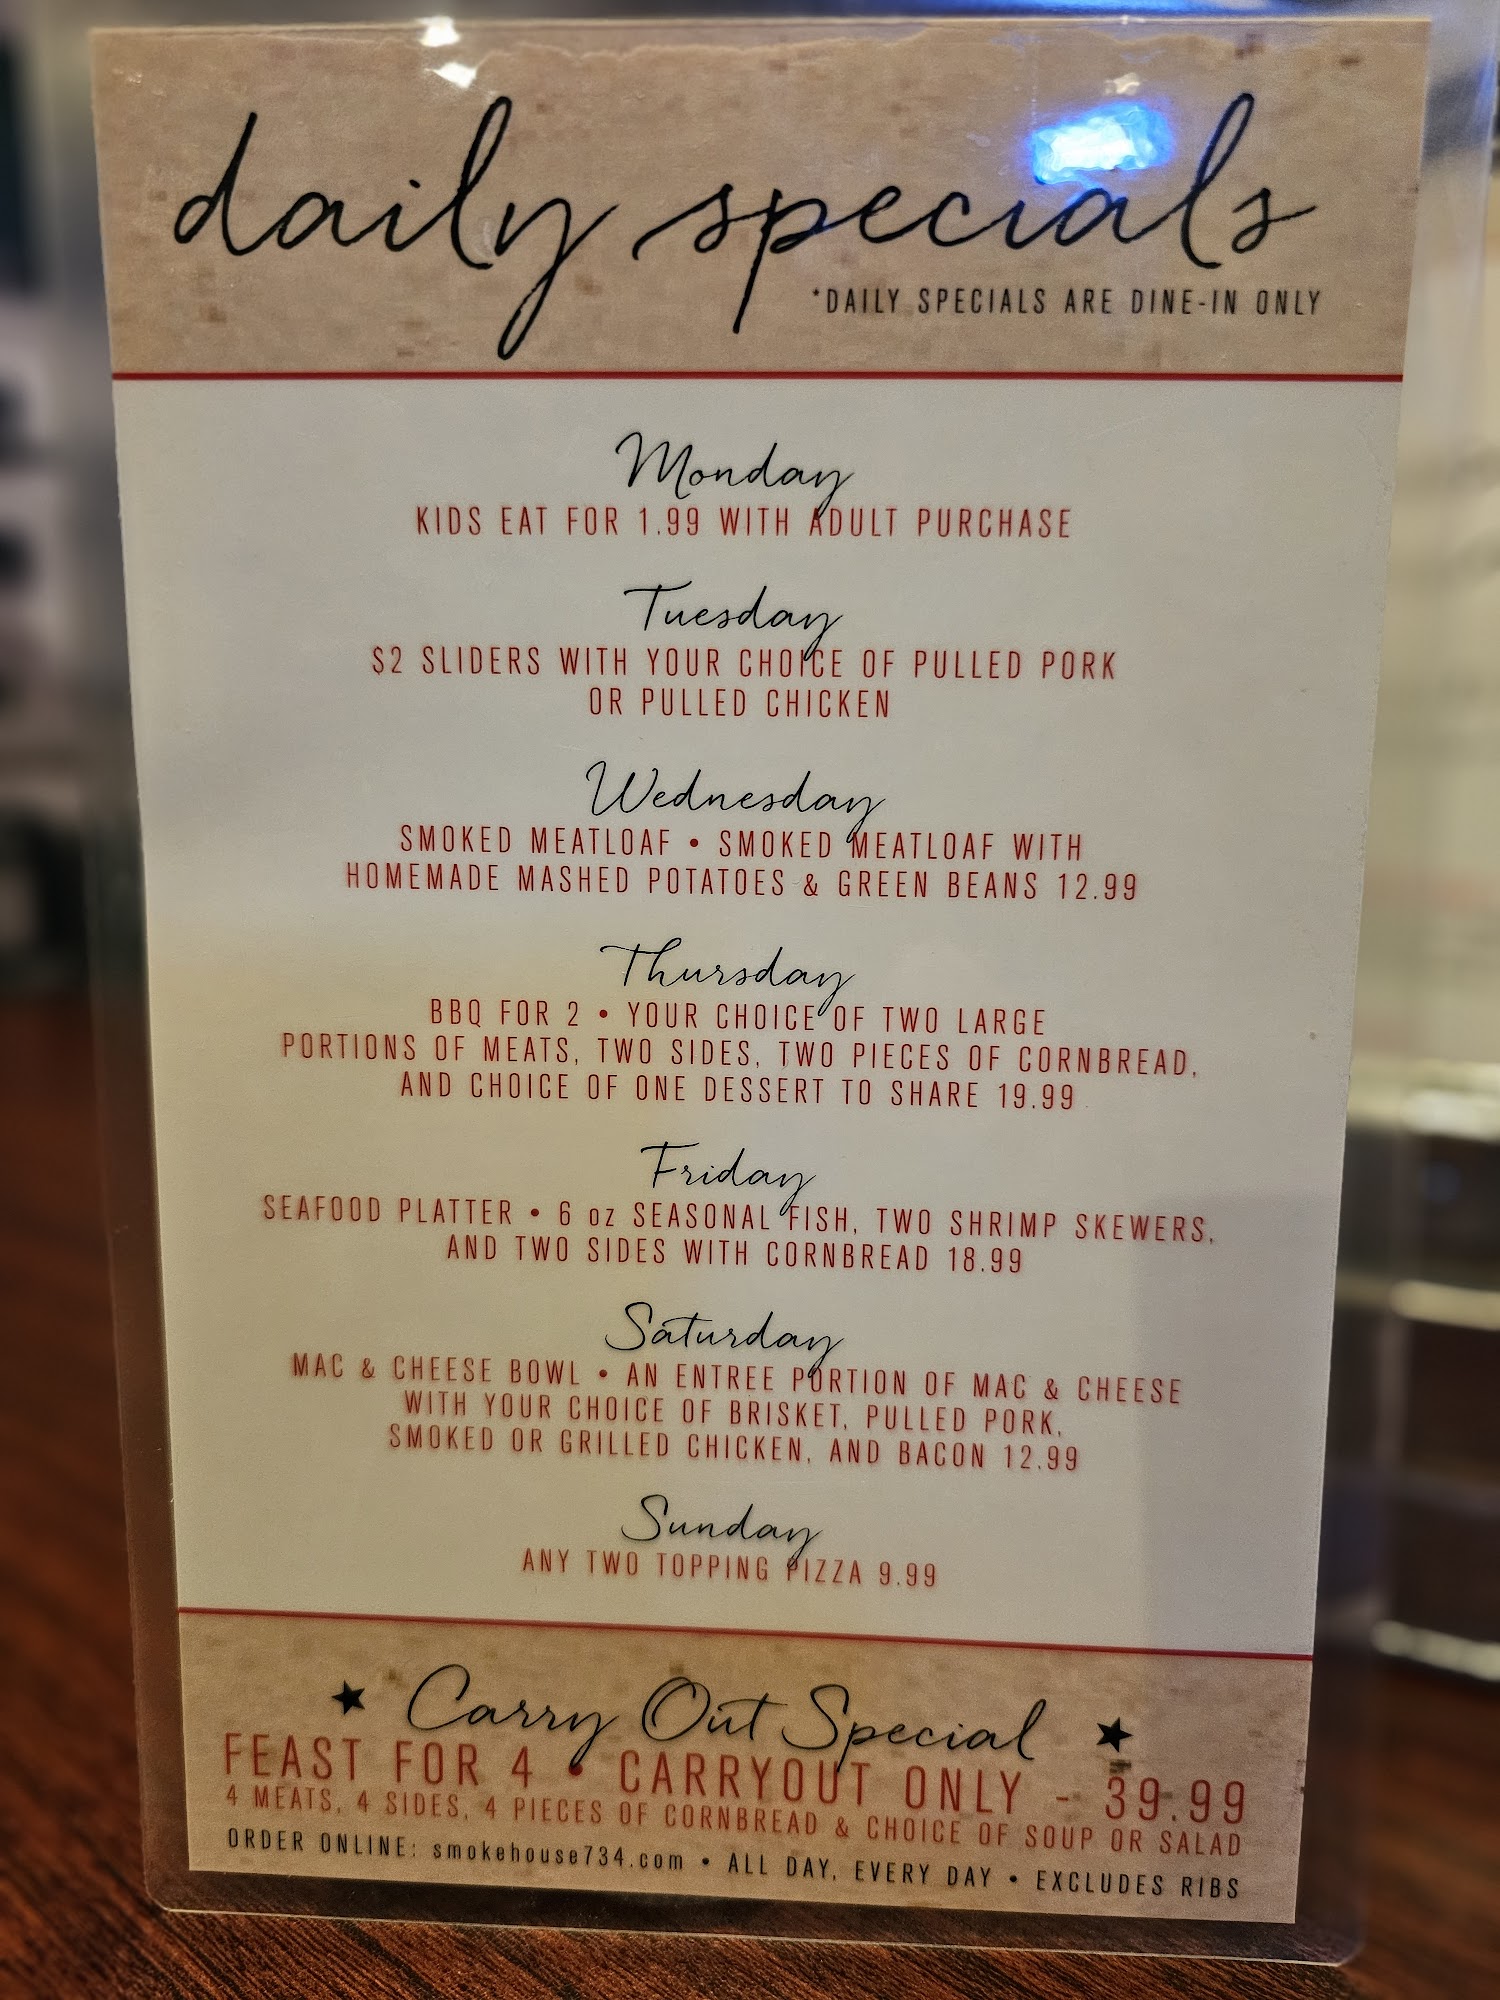 daily specials
*DAILY SPECIALS ARE DINE-IN ONLY
Monday
KIDS EAT FOR 1.99 WITH ADULT PURCHASE
Tuesday
$2 SLIDERS WITH YOUR CHOICE OF PULLED PORK
OR PULLED CHICKEN
Wednesday
SMOKED MEATLOAF • SMOKED MEATLOAF WITH
HOMEMADE MASHED POTATOES & GREEN BEANS 12.99
Thursday
BBQ FOR 2 • YOUR CHOICE OF TWO LARGE
PORTIONS OF MEATS, TWO SIDES, TWO PIECES OF CORNBREAD,
AND CHOICE OF ONE DESSERT TO SHARE 19.99
Friday
SEAFOOD PLATTER • 6 oz SEASONAL FISH, TWO SHRIMP SKEWERS,
AND TWO SIDES WITH CORNBREAD 18.99
Saturday
MAC & CHEESE BOWL • AN ENTREE PORTION OF MAC & CHEESE
WITH YOUR CHOICE OF BRISKET, PULLED PORK,
SMOKED OR GRILLED CHICKEN, AND BACON 12.99
Sunday
ANY TWO TOPPING PIZZA 9.99
★ Carry Out Special ★
FEAST FOR 4 • CARRYOUT ONLY - 39.99
4 MEATS, 4 SIDES, 4 PIECES OF CORNBREAD & CHOICE OF SOUP OR SALAD
ORDER ONLINE: smokehouse734.com • ALL DAY, EVERY DAY • EXCLUDES RIBS